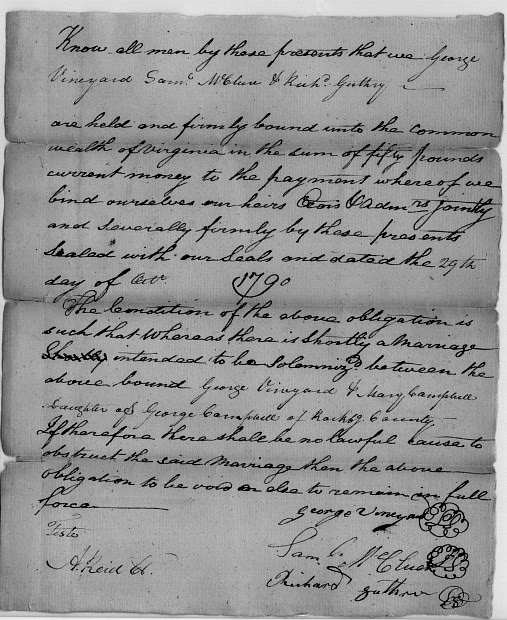 Know all men by these presents that we George
Vineyard Saml. McClure & Richd. Guthry
are held and firmly bound unto the common
wealth of Virginia in the sum of fifty pounds
current money to the payment whereof we
bind ourselves our heirs Exors & Admrs jointly
and severally firmly by these presents
Sealed with our Seals and dated the 29th
day of Octr. 1790
The Condition of the above obligation is
such that Whereas there is Shortly a Marriage
intended to be Solemnizd. between the
above bound George Vineyard & Mary Campbell
Daughter of George Campbell of Rockbg. County
If therefore there shall be no lawful cause to
obstruct the said Marriage then the above
obligation to be void or else to remain in full
force
George Vineyard
Teste
Saml. McClure
A. Reid Ct.
Richard Guthre